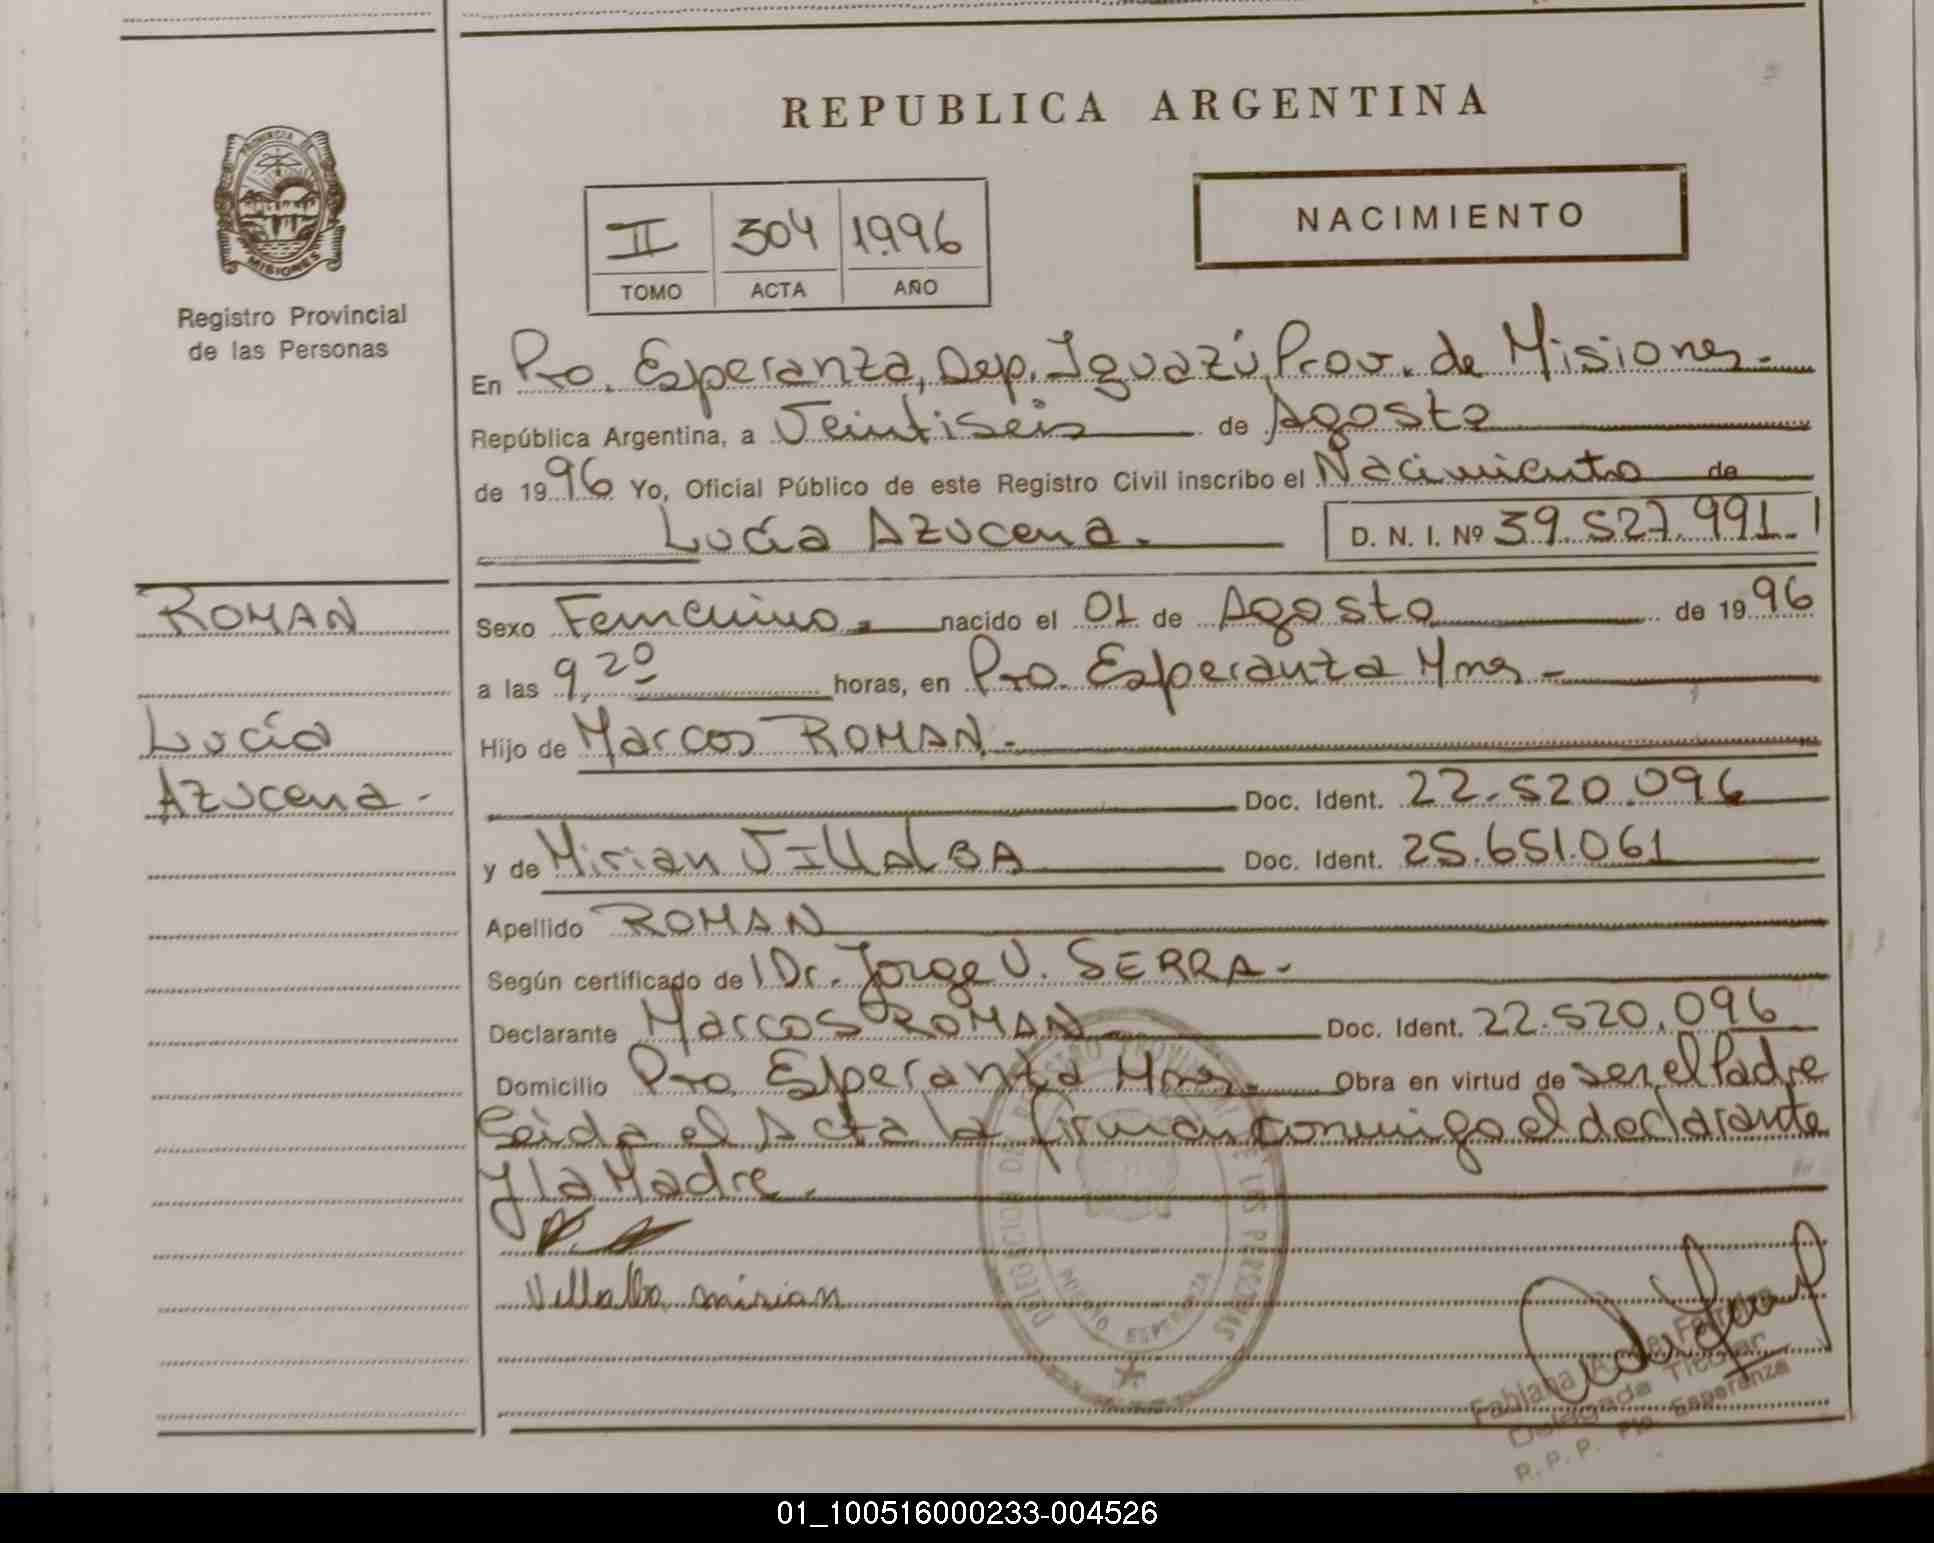 REPUBLICA ARGENTINA
PROVINCIA DE
MISIONES
Registro Provincial
de las Personas
NACIMIENTO
II 304 1996
TOMO ACTA AÑO
En Pto. Esperanza, Dep. Iguazú, Prov. de Misiones.-
República Argentina, a Veintiseis de Agosto
de 1996 Yo, Oficial Público de este Registro Civil inscribo el Nacimiento de
Lucía Azucena.
D. N. I. Nº 39.527.991.
ROMAN
Lucía
Azucena.-
Sexo Femenino.- nacido el 01 de Agosto de 1996
a las 9,20 horas, en Pto. Esperanza Mnes.-
Hijo de Marcos ROMAN.-
Doc. Ident. 22.520.096
y de Mirian VILLALBA Doc. Ident. 25.651.061
Apellido ROMAN
Según certificado de l Dr. Jorge V. SERRA.-
Declarante Marcos ROMAN Doc. Ident. 22.520.096
Domicilio Pto Esperanza Mnes.- Obra en virtud de ser el Padre
Leida el Acta la firman conmigo el declarante
y la Madre.
Villalba mirian
DELEGACION DE REGISTRO PROVINCIAL DE LAS PERSONAS
ESPERANZA
Fabiana
Delegada Titular
R.P.P. Pto. Esperanza
01_100516000233-004526